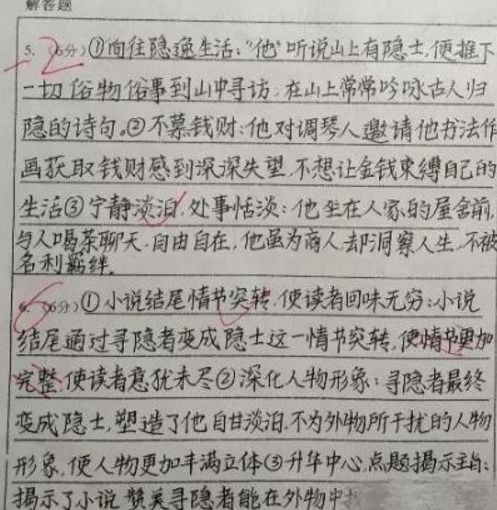 解答题
-2
5. (6分)①向往隐逸生活:“他”听说山上有隐士,便推下
一切俗物俗事到山中寻访,在山上常常吟咏古人归
隐的诗句。②不慕钱财:他对调琴人邀请他书法作
画获取钱财感到深深失望,不想让金钱束缚自己的
生活③宁静淡泊,处事恬淡:他坐在人家的屋舍前,
与人喝茶聊天,自由自在,他虽为商人却洞察人生,不被
名利羁绊。
6. (6分)①小说结尾情节突转,使读者回味无穷:小说
结尾通过寻隐者变成隐士这一情节突转,使情节更加
完整,使读者意犹未尽②深化人物形象:寻隐者最终
变成隐士,塑造了他自甘淡泊,不为外物所干扰的人物
形象,使人物更加丰满立体③升华中心,点题揭示主旨:
揭示了小说赞美寻隐者能在外物中